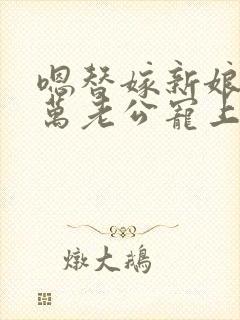 嗯替嫁新娘
萬老公寵上
燉大鵝